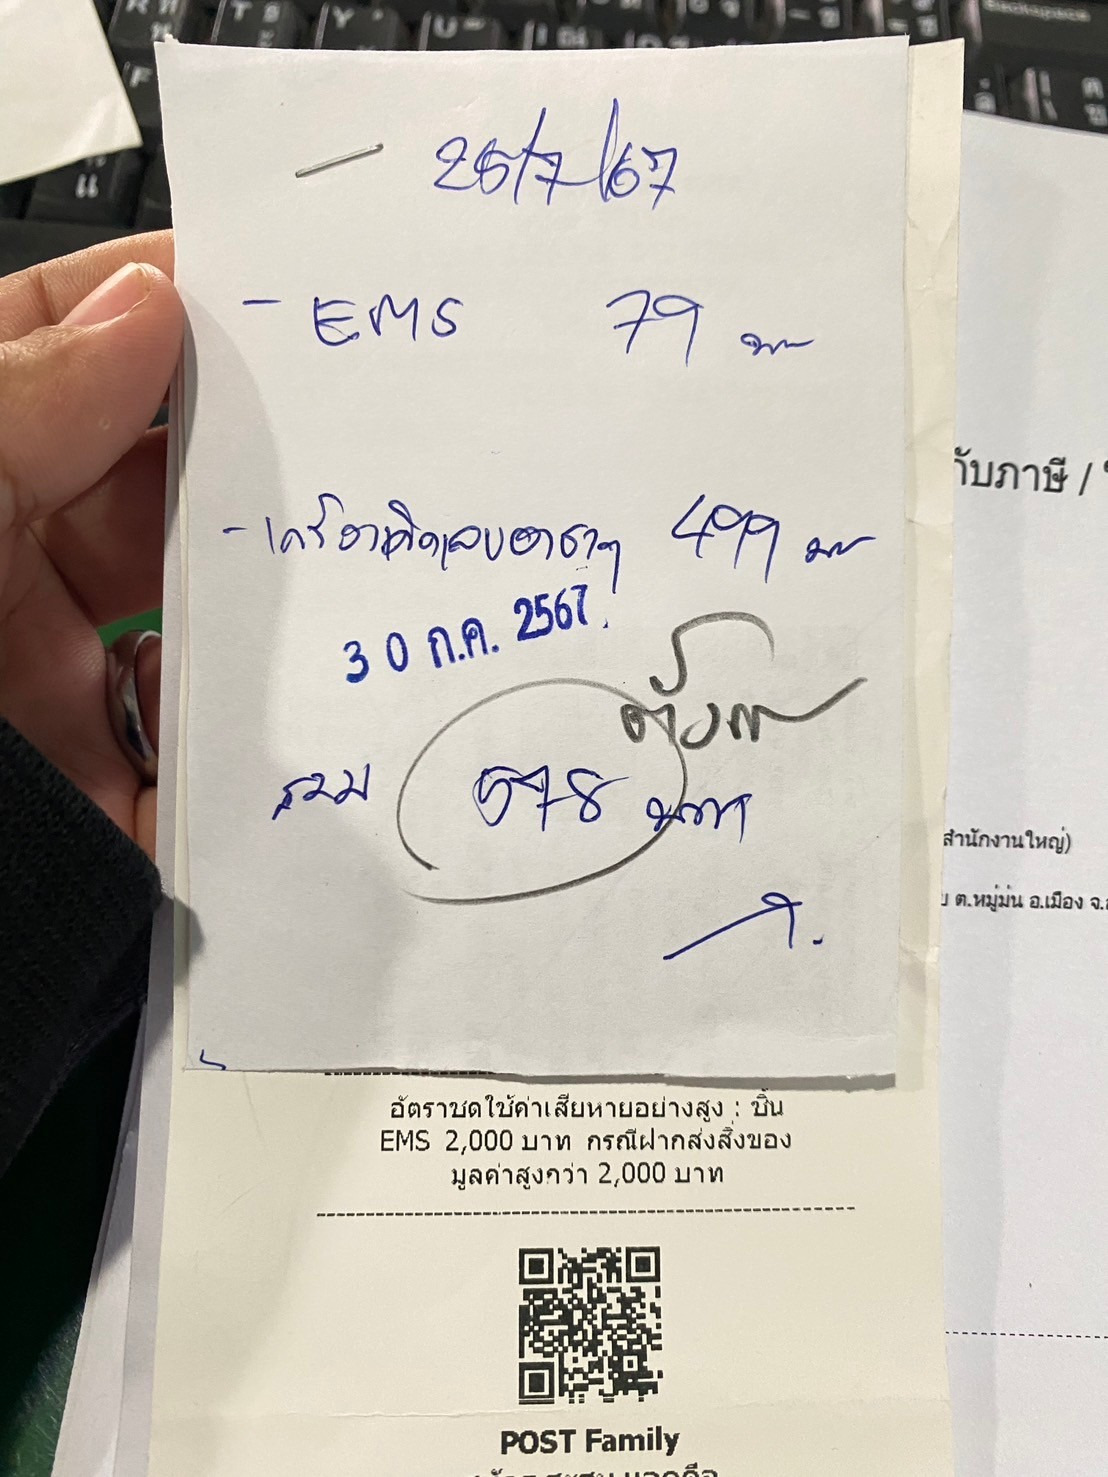 25/7/67
- EMS 79 บาท
- เครื่องคิดเลข 499 บาท
30 ก.ค. 2567
รวม 578 บาท
อัตราชดใช้ค่าเสียหายอย่างสูง : ชิ้น
EMS 2,000 บาท กรณีฝากส่งสิ่งของ
มูลค่าสูงกว่า 2,000 บาท
POST Family
กับภาษี /
สำนักงานใหญ่)
ต.หมู่ม่น อ.เมือง จ.
Backspace